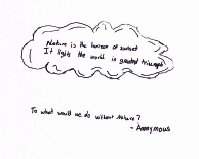 Nature is the horizon of sunset
It lights the world in greatest triumph
To what would we do without Nature?
- Anonymous